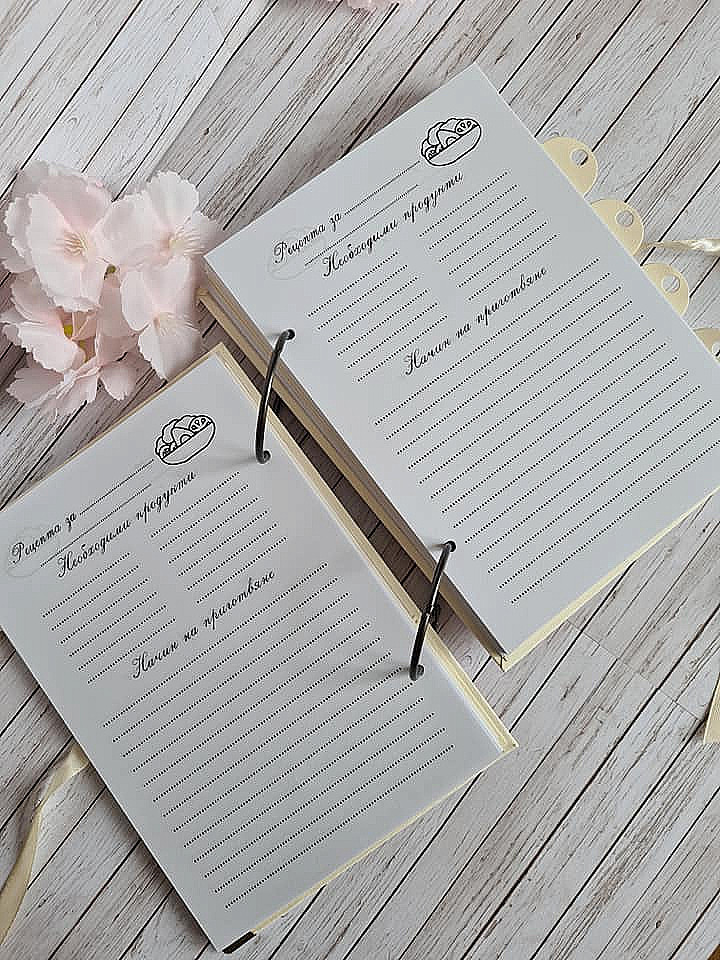 Рецепта за
Необходими продукти
Начин на приготвяне
Рецепта за
Необходими продукти
Начин на приготвяне